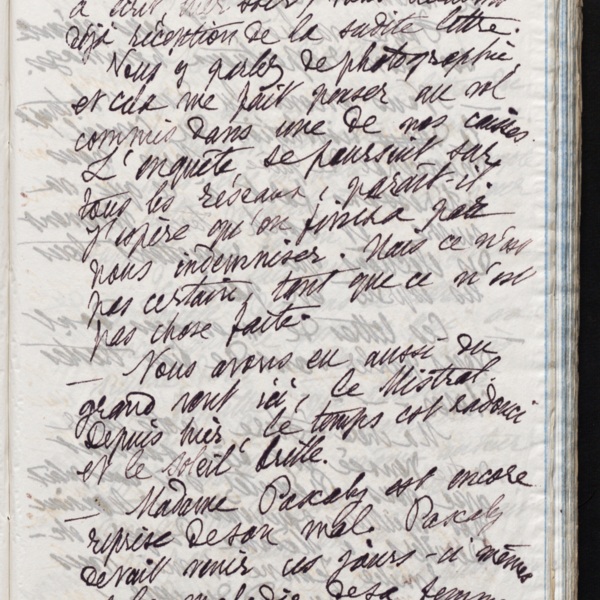 a écrit hier soir,
déjà réception de la susdite lettre.
Vous y parlez de photographie,
et cela me fait penser au vol
commis dans une de nos caisses.
L'enquête se poursuit sur
tous les réseaux, paraît-il.
J'espère qu'on finira par
nous indemniser. Mais ce n'est
pas certain, tant que ce n'est
pas chose faite.
— Nous avons eu aussi du
grand vent ici, le Mistral.
Depuis hier, le temps est radouci
et le soleil brille.
— Madame Pascaly est encore
reprise de son mal. Pascaly
devait venir ces jours-ci mêmes
la maladie de sa femme